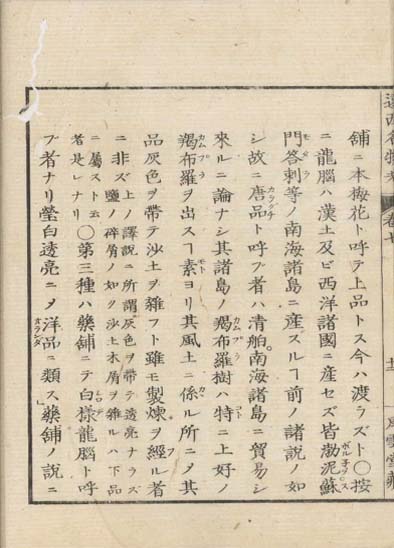 遠西名物考 卷七 十一 風雲堂藏
舖ニ本梅花ト呼テ上品トス今ハ渡ラズト〇按
ニ龍腦ハ漢土及ビ西洋諸國ニ産セズ皆勃泥蘇
門答剌等ノ南海諸島ニ産スルヿ前ノ諸説ノ如
シ故ニ唐品ト呼ブ者ハ清舶南海諸島ニ貿易シ
來ルニ論ナシ其諸島ノ羯布羅樹ハ特ニ上好ノ
羯布羅ヲ出スヿ素ヨリ其風土ニ係ル所ニメ其
品灰色ヲ帶テ沙土ヲ雜フト雖モ製煉ヲ經ル者
ニ非ズ上ノ譯説ニ所謂灰色ヲ帶テ透亮ナラズ鹽ノ碎屑ノ如ク沙土木屑ヲ雜ルハ下品
ニ屬スト云者是レナリ〇第三種ハ藥舖ニテ白樣龍腦ト呼
ブ者ナリ瑩白透亮ニメ洋品ニ類ス藥舖ノ説ニ